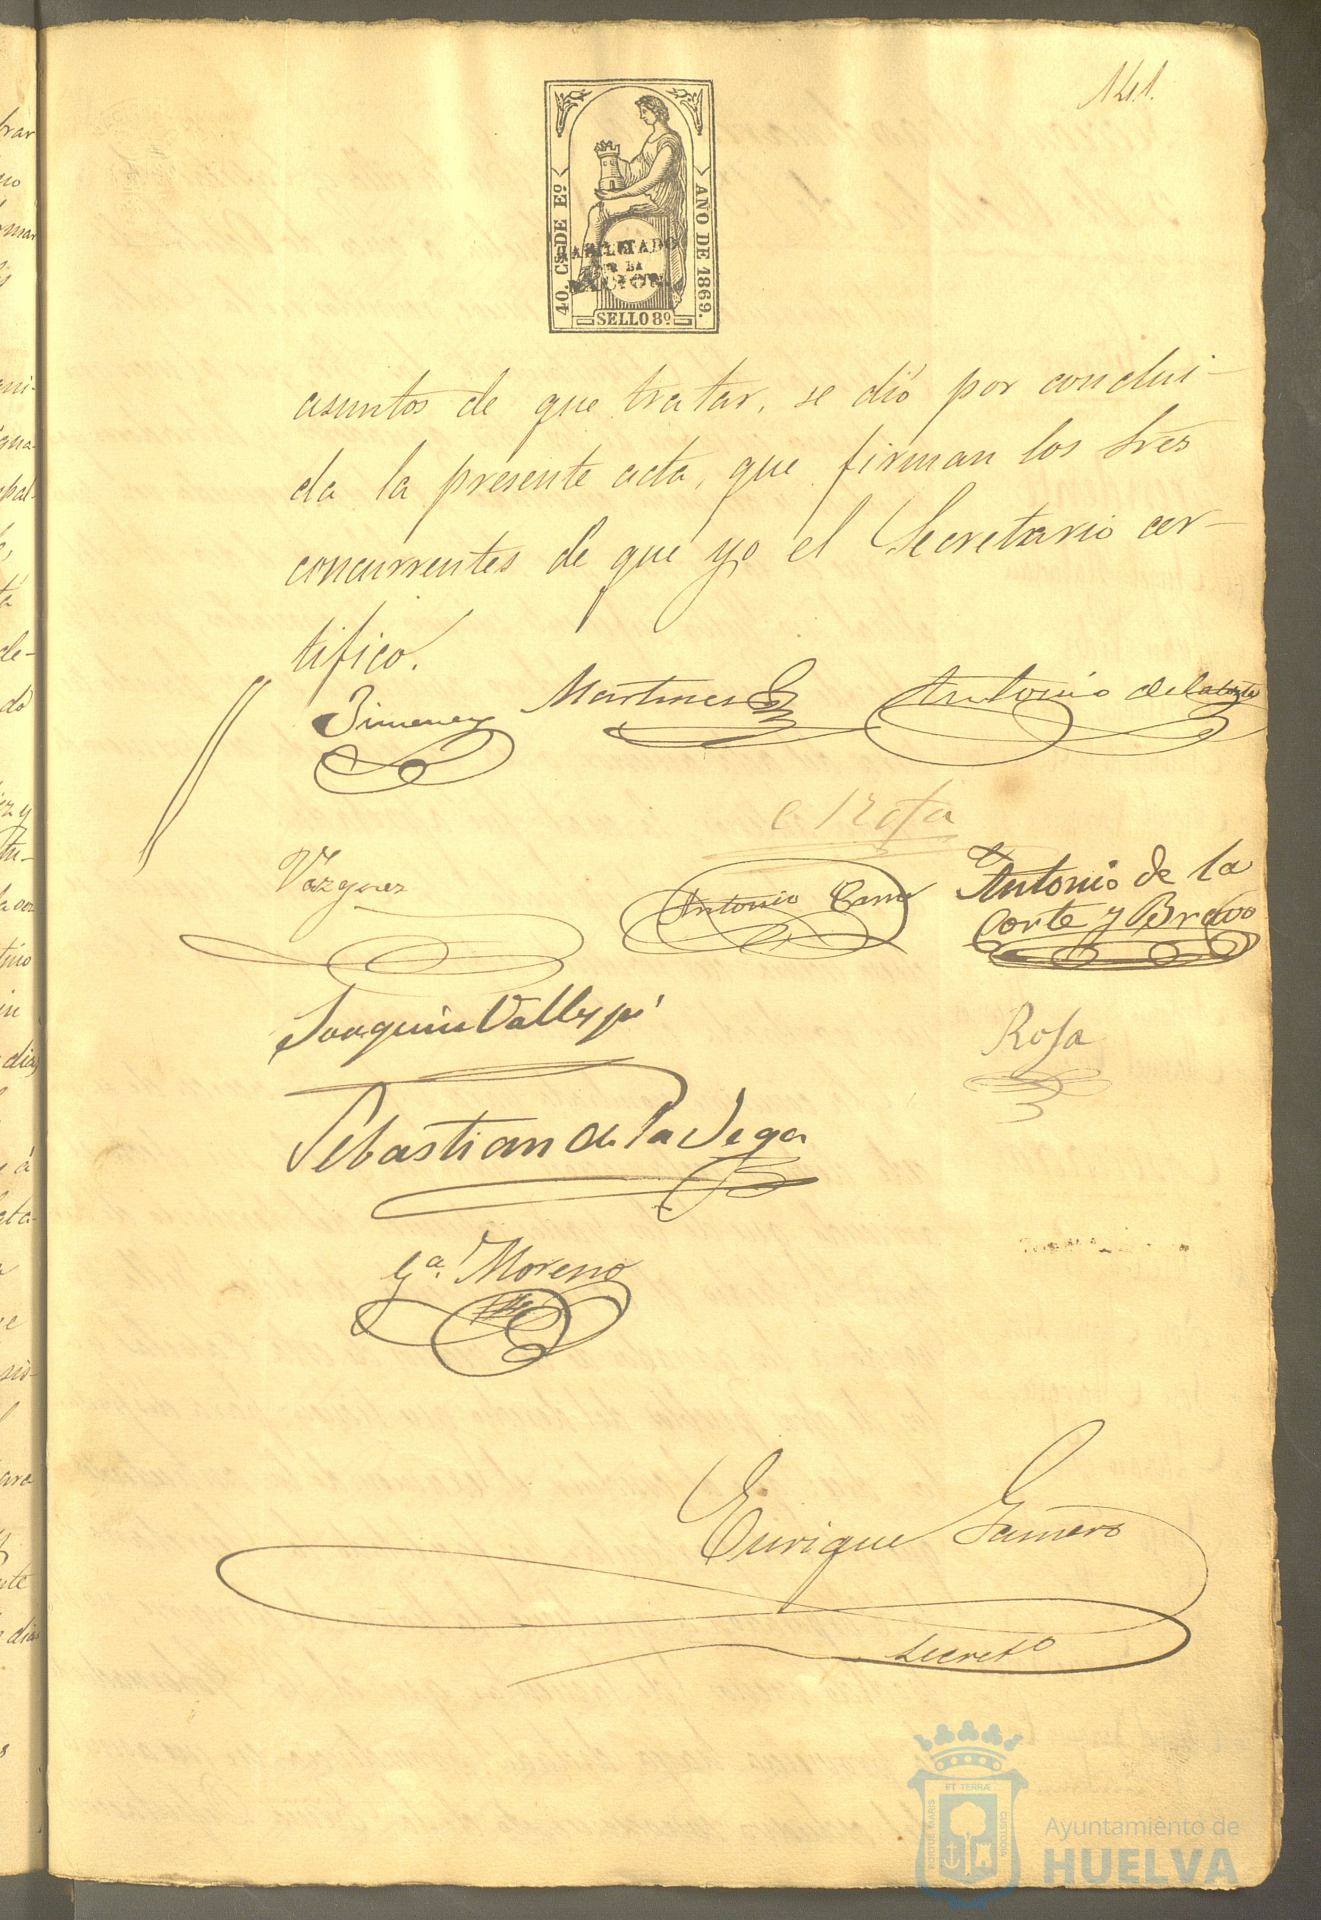 141.
40. Cs. DE Eo.
AÑO DE 1869.
HABILITADO
POR LA
NACION.
SELLO 8º
asuntos de que tratar, se dió por conclui-
da la presente acta, que firman los Sres
concurrentes de que yo el Secretario cer-
tifico.
Jimenez
Martinez
Antonio de la Corte
Rosa
Vazquez
Antonio
Antonio de la
Corte y Bravo
Joaquin
Rosa
Sebastian de la Vega
Gª. Moreno
Enrique Gamero
Secretº
ET TERRÆ
PORTUS MARIS
CUSTODIA
Ayuntamiento de
HUELVA